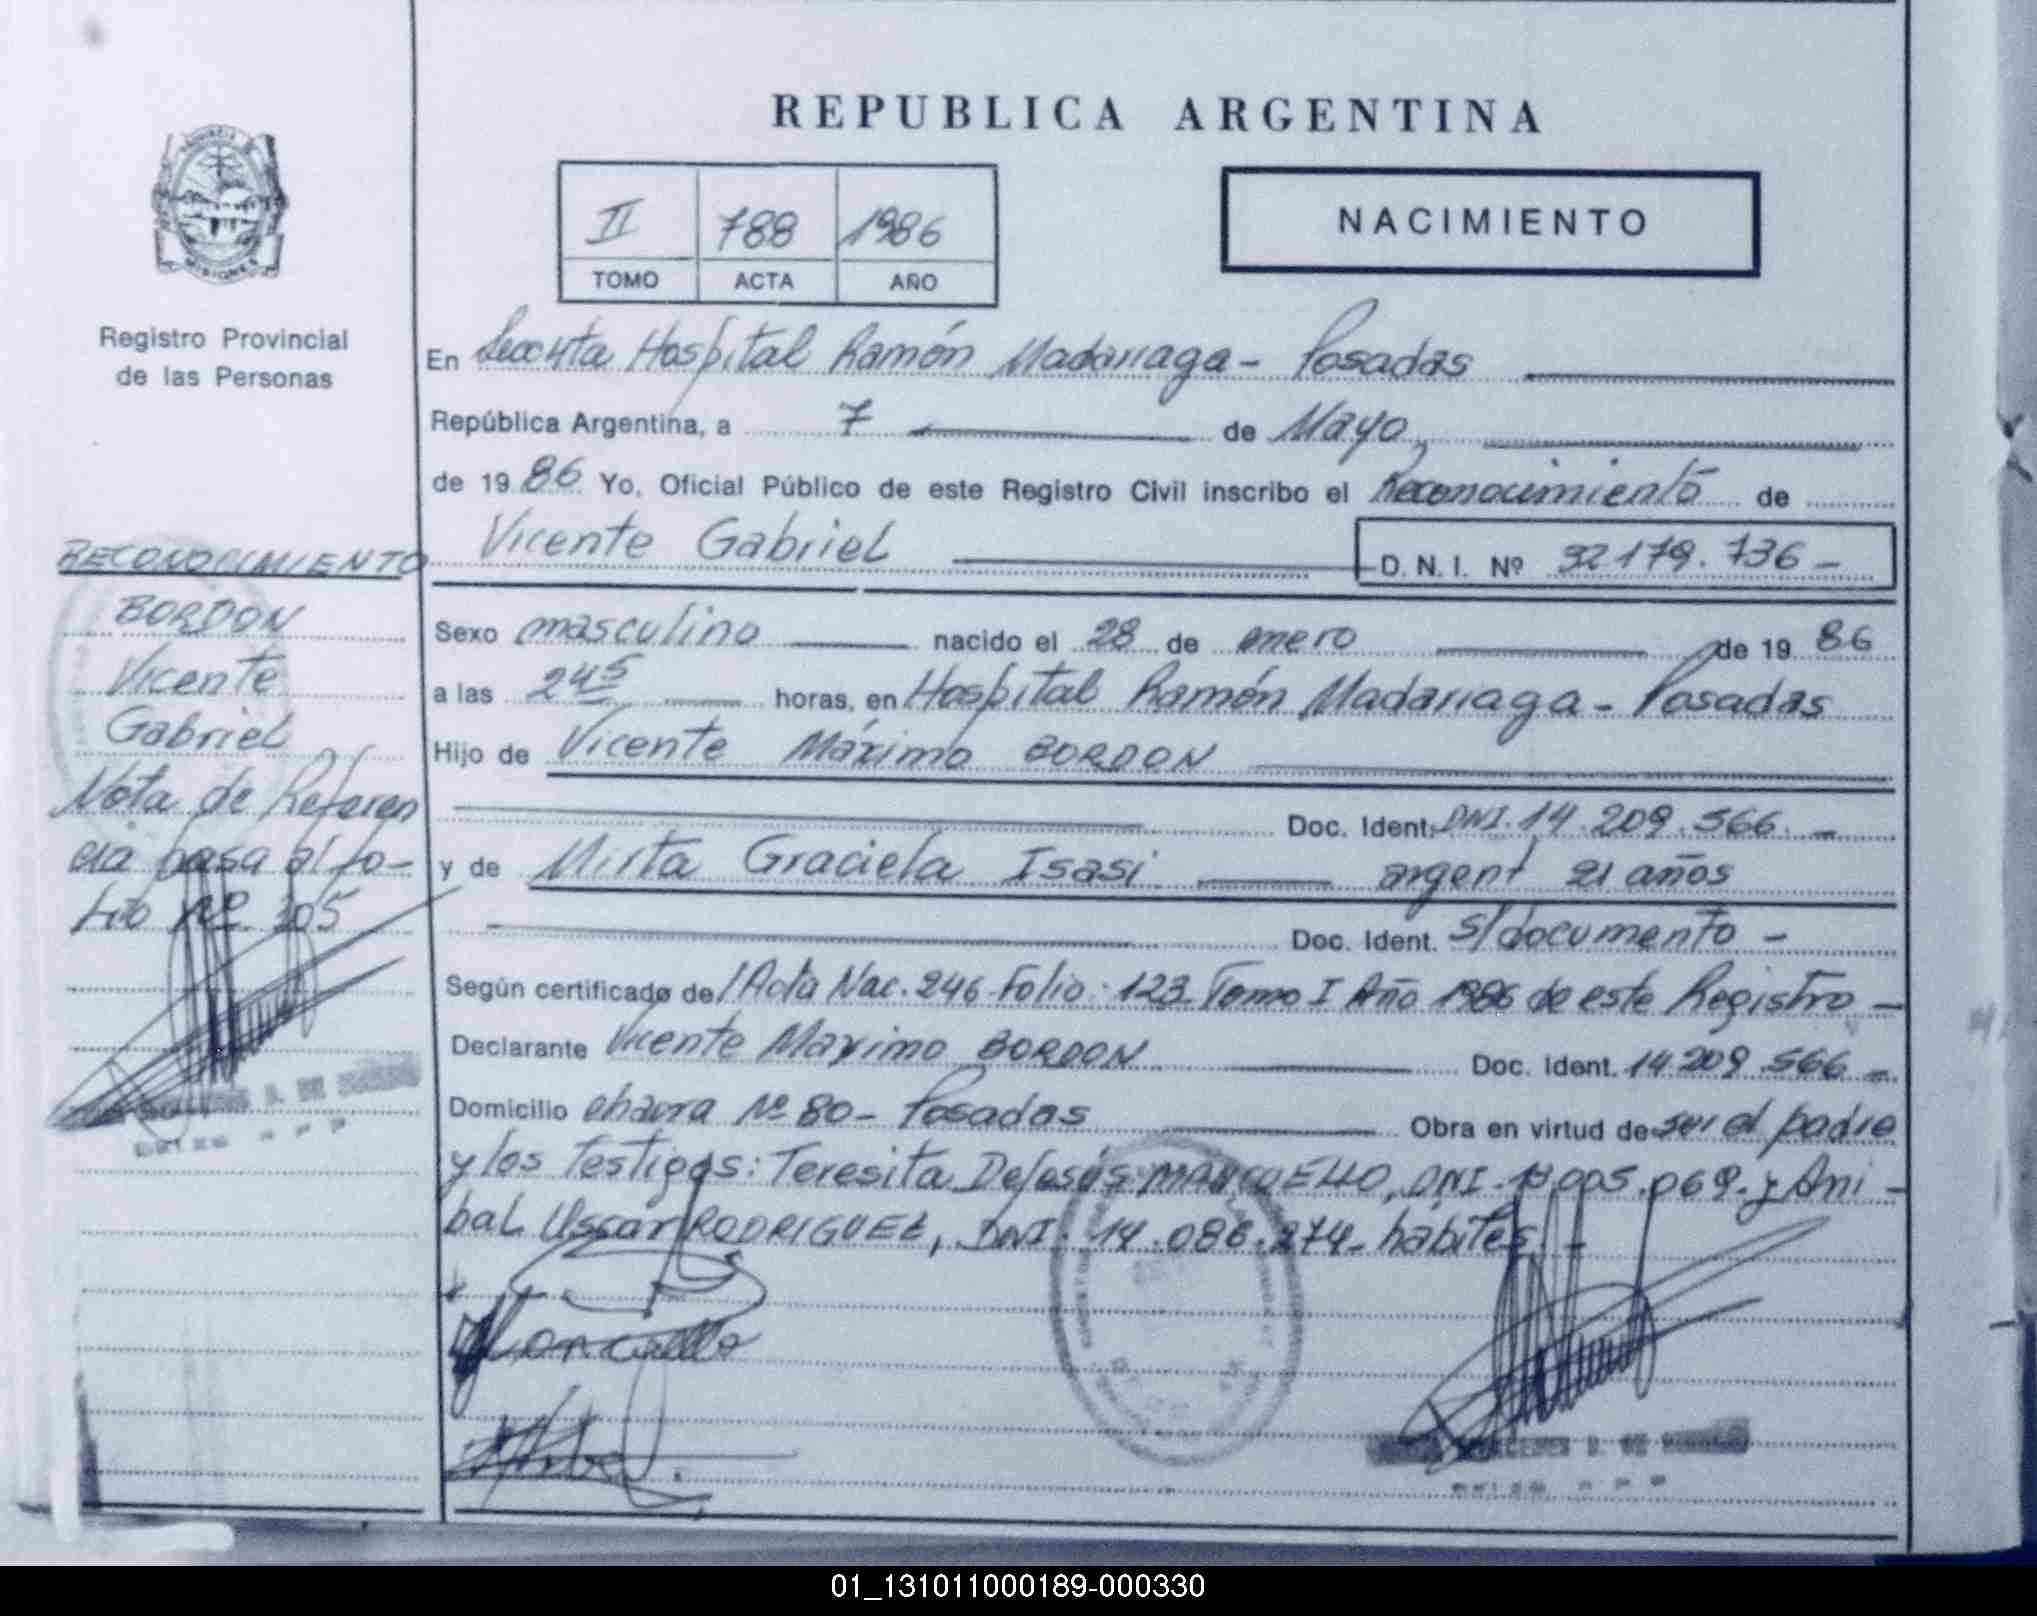 REPUBLICA ARGENTINA
II 788 1986
TOMO ACTA AÑO
NACIMIENTO
MISIONES
Registro Provincial
de las Personas
En Hospital Ramón Madariaga - Posadas
República Argentina, a 7 de Mayo,
de 1986 Yo, Oficial Público de este Registro Civil inscribo el Reconocimiento de
Vicente Gabriel D. N. I. Nº 32.179.736 -
Sexo masculino nacido el 28 de enero de 19 86
a las 24 5 horas, en Hospital Ramón Madariaga - Posadas
Hijo de Vicente Máximo BORDON
Doc. Ident. DNI. 14.209.566. -
y de Mirta Graciela Isasi argent 21 años
Doc. Ident. s/documento -
Según certificado de /Acta Nac. 246 Folio: 123 Tomo I Año 1986 de este Registro -
Declarante Vicente Maximo BORDON Doc. Ident. 14.209.566 -
Domicilio chacra Nº 80 - Posadas Obra en virtud de ser el padre
y los Testigos: Teresita DeJesús DNI. 069. y Ani-
bal Oscar RODRIGUEZ, DNI. 14.086.274 - hábiles. -
RECONOCIMIENTO
BORDON
Vicente
Gabriel
Nota de Referen
cia pasa al fo-
lio Nº 105
01_131011000189-000330